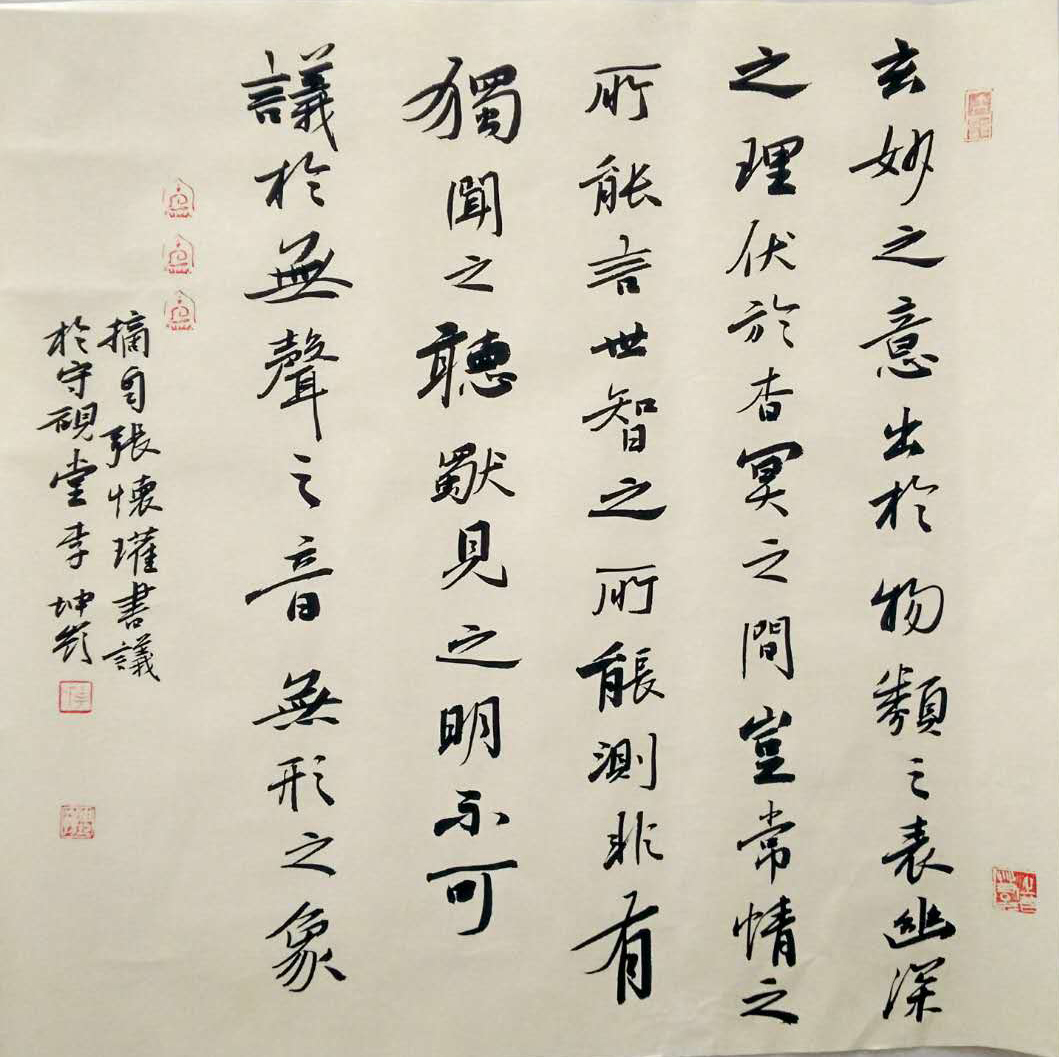 玄妙之意出於物類之表幽深
之理伏於杳冥之間豈常情之
所能言世智之所能測非有
獨聞之聽獨見之明不可
議於無聲之音無形之象
摘自張懷瓘書議
於守硯堂李坤